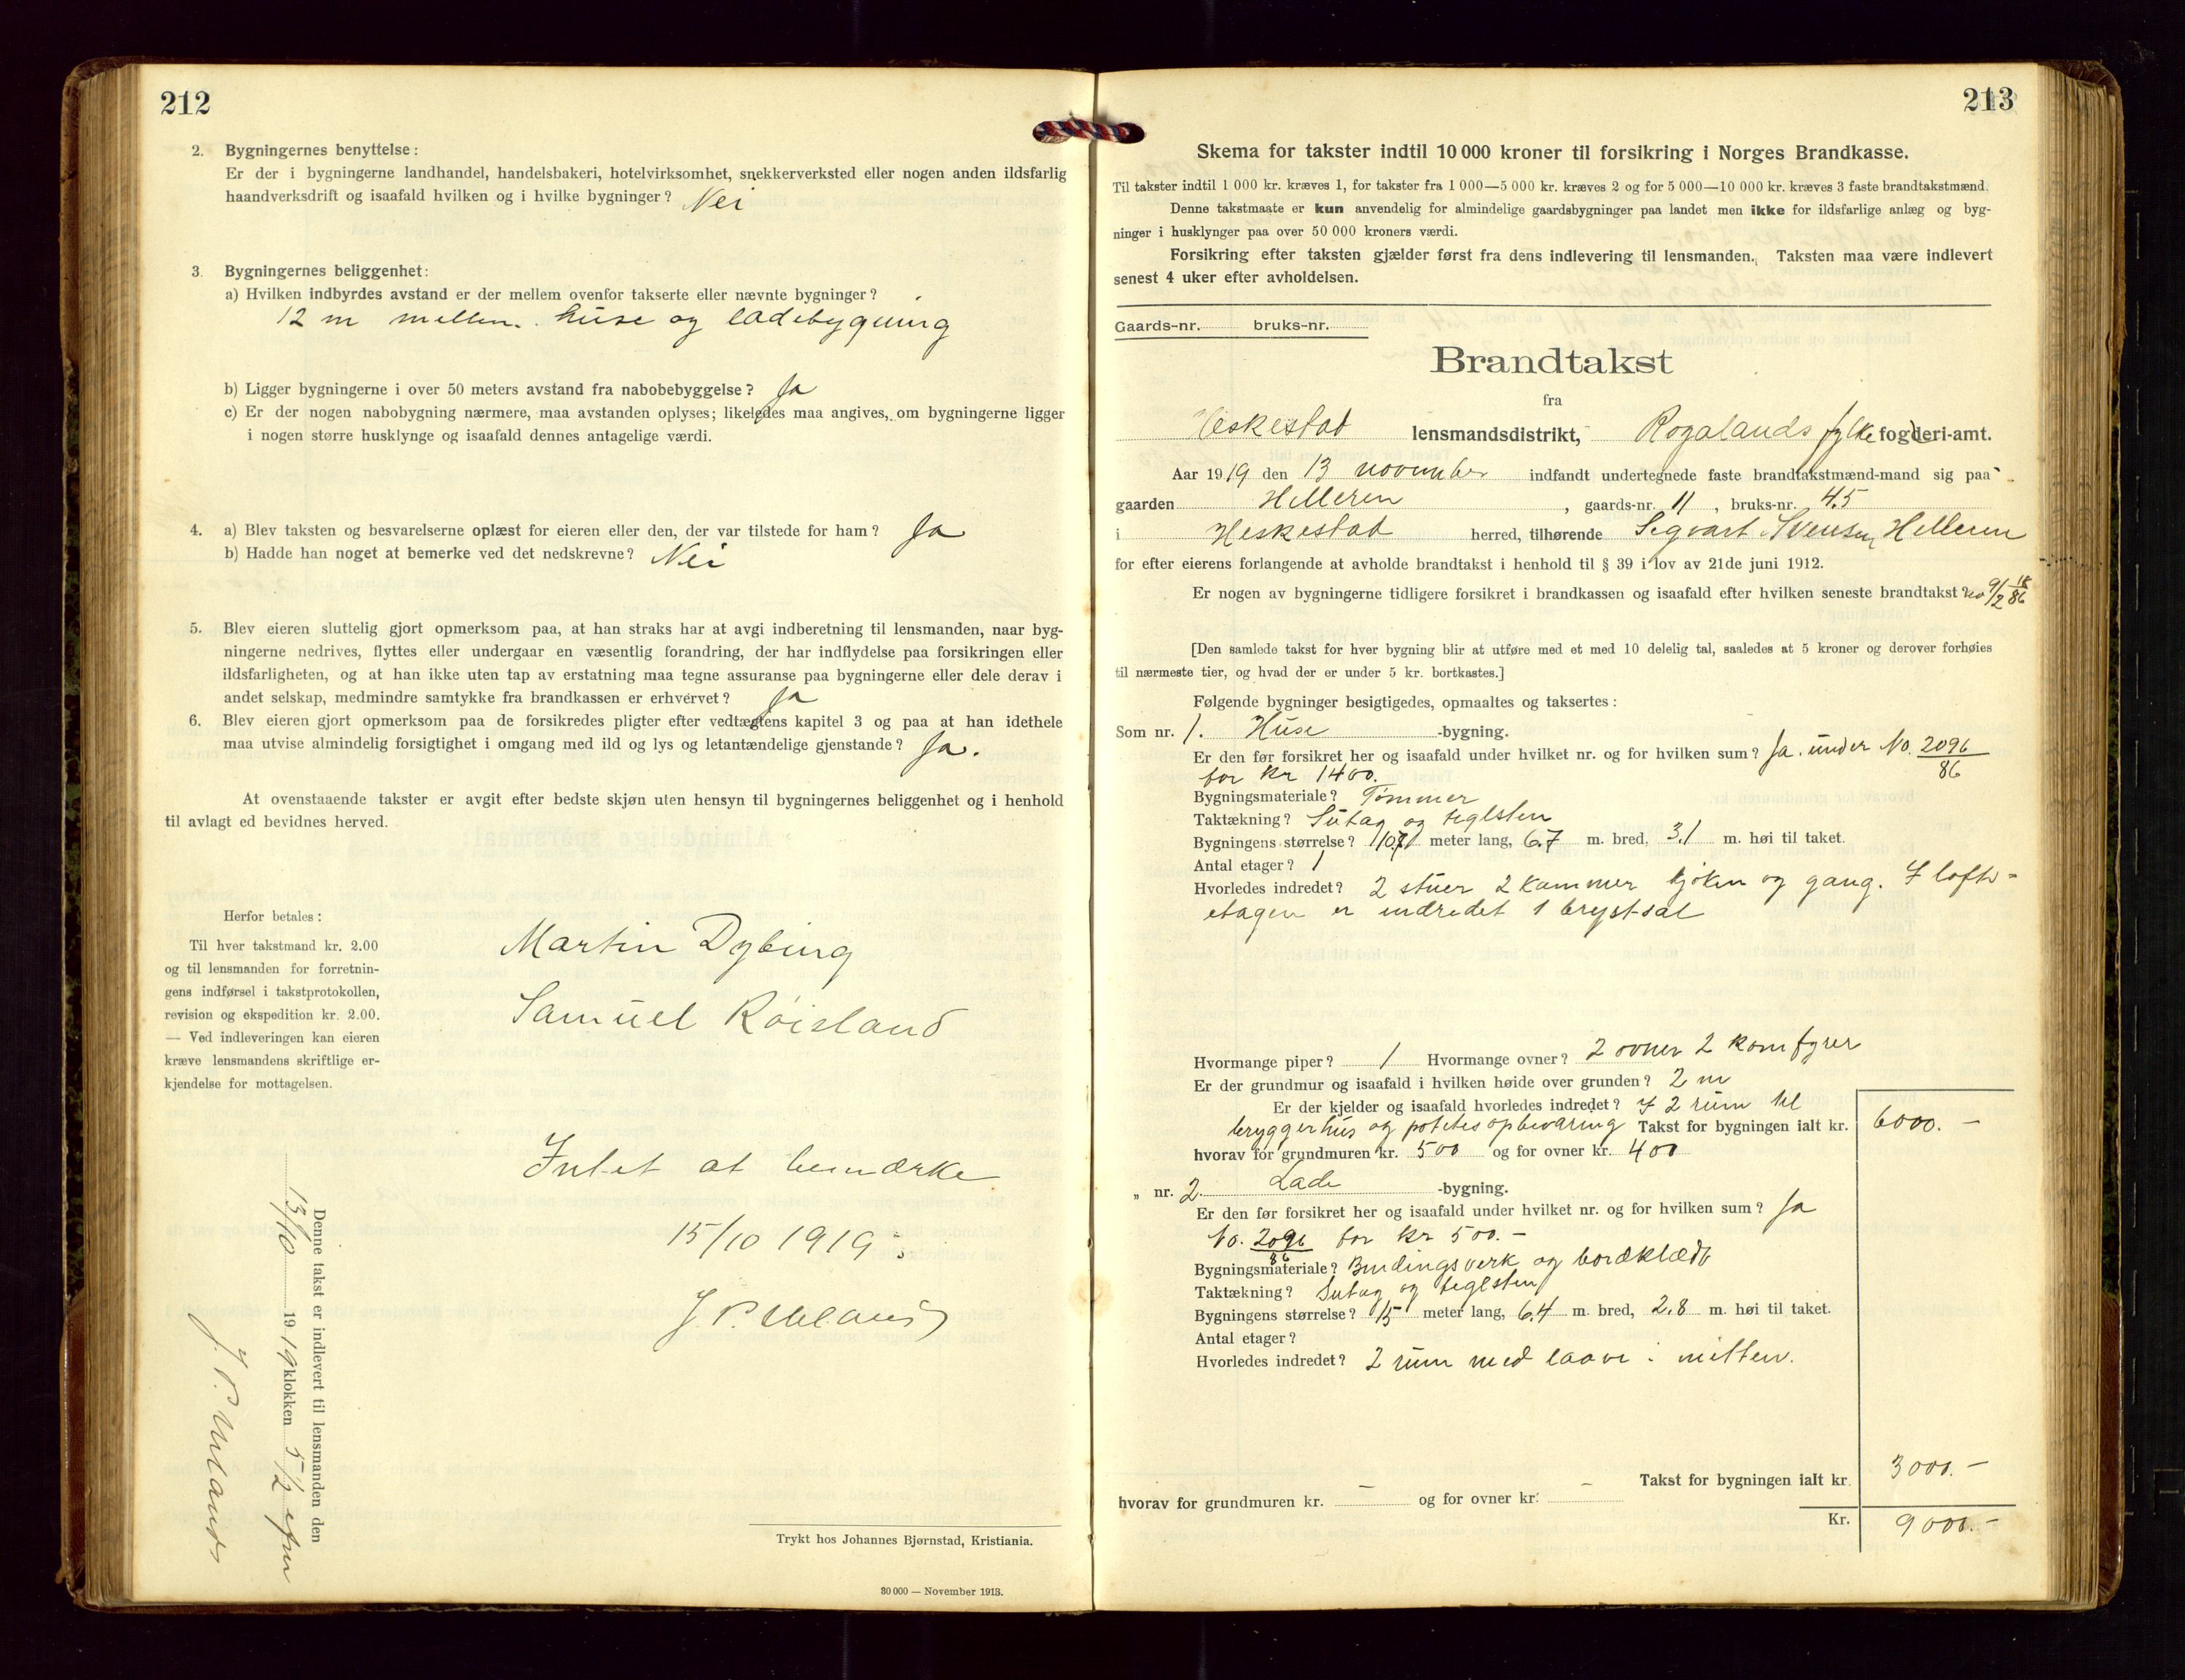 212
2. Bygningernes benyttelse:
Er der i bygningerne landhandel, handelsbakeri, hotelvirksomhet, snekkerverksted eller nogen anden ildsfarlig
haandverksdrift og isaafald hvilken og i hvilke bygninger? Nei
3. Bygningernes beliggenhet:
a) Hvilken indbyrdes avstand er der mellem ovenfor takserte eller nævnte bygninger?
12 m mellem huse og ladebygning
b) Ligger bygningerne i over 50 meters avstand fra nabobebyggelse? Ja
c) Er der nogen nabobygning nærmere, maa avstanden oplyses; likeledes maa angives, om bygningerne ligger
i nogen større husklynge og isaafald dennes antagelige værdi.
4. a) Blev taksten og besvarelserne oplæst for eieren eller den, der var tilstede for ham? Ja
b) Hadde han noget at bemerke ved det nedskrevne? Nei
5. Blev eieren sluttelig gjort opmerksom paa, at han straks har at avgi indberetning til lensmanden, naar byg-
ningerne nedrives, flyttes eller undergaar en væsentlig forandring, der har indflydelse paa forsikringen eller
ildsfarligheten, og at han ikke uten tap av erstatning maa tegne assuranse paa bygningerne eller dele derav i
andet selskap, medmindre samtykke fra brandkassen er erhvervet? Ja
6. Blev eieren gjort opmerksom paa de forsikredes pligter efter vedtægtens kapitel 3 og paa at han idethele
maa utvise almindelig forsigtighet i omgang med ild og lys og letantændelige gjenstande? Ja.
At ovenstaaende takster er avgit efter bedste skjøn uten hensyn til bygningernes beliggenhet og i henhold
til avlagt ed bevidnes herved.
Herfor betales:
Til hver takstmand kr. 2.00
og til lensmanden for forretnin-
gens indførsel i takstprotokollen,
revision og ekspedition kr. 2.00.
— Ved indleveringen kan eieren
kræve lensmandens skriftlige er-
kjendelse for mottagelsen.
Martin Dybing
Samuel Röisland
Intet at bemærke
15/10 1919
Denne takst er indlevert til lensmanden den
13/10 1919 klokken 5 1/2 efm
Trykt hos Johannes Bjørnstad, Kristiania.
30 000 — November 1913.
213
Skema for takster indtil 10 000 kroner til forsikring i Norges Brandkasse.
Til takster indtil 1 000 kr. kræves 1, for takster fra 1 000—5 000 kr. kræves 2 og for 5 000—10 000 kr. kræves 3 faste brandtakstmænd.
Denne takstmaate er kun anvendelig for almindelige gaardsbygninger paa landet men ikke for ildsfarlige anlæg og byg-
ninger i husklynger paa over 50 000 kroners værdi.
Forsikring efter taksten gjælder først fra dens indlevering til lensmanden. Taksten maa være indlevert
senest 4 uker efter avholdelsen.
Gaards-nr. bruks-nr.
Brandtakst
fra
Heskestad lensmandsdistrikt, Rogalands fylke fogderi-amt.
Aar 1919 den 13 november indfandt undertegnede faste brandtakstmænd-mand sig paa
gaarden Helleren, gaards-nr. 11, bruks-nr. 4.5
i Heskestad herred, tilhørende Segvart Svensen Helleren
for efter eierens forlangende at avholde brandtakst i henhold til § 39 i lov av 21de juni 1912.
Er nogen av bygningerne tidligere forsikret i brandkassen og isaafald efter hvilken seneste brandtakst? 9/2 18/86
[Den samlede takst for hver bygning blir at utføre med et med 10 delelig tal, saaledes at 5 kroner og derover forhøies
til nærmeste tier, og hvad der er under 5 kr. bortkastes.]
Følgende bygninger besigtigedes, opmaaltes og taksertes:
Som nr. 1. Huse -bygning.
Er den før forsikret her og isaafald under hvilket nr. og for hvilken sum? Ja. under No. 2096/86
for kr 1400.
Bygningsmateriale? Tømmer
Taktækning? Sutag og teglsten
Bygningens størrelse? meter lang, 6.7 m. bred, 3.1 m. høi til taket.
Antal etager? 1
Hvorledes indredet? 2 stuer 2 kammer kjøken og gang. I lofts-
etagen er indredet 1 brystsal
Hvormange piper? 1 Hvormange ovner? 2 ovner 2 komfyrer
Er der grundmur og isaafald i hvilken høide over grunden? 2 m
Er der kjelder og isaafald hvorledes indredet? I 2 rum til
bryggerhus og potetesopbevaring Takst for bygningen ialt kr. 6000.-
hvorav for grundmuren kr. 500 og for ovner kr. 400
„ nr. 2. Lade -bygning.
Er den før forsikret her og isaafald under hvilket nr. og for hvilken sum? Ja
No. 2096/86 for kr 500.-
Bygningsmateriale? Bindingsverk og bordklædt
Taktækning? Sutag og teglsten
Bygningens størrelse? 15 meter lang, 6.4 m. bred, 2.8 m. høi til taket.
Antal etager?
Hvorledes indredet? 2 rum med laave i mitten.
Takst for bygningen ialt kr. 3000.-
hvorav for grundmuren kr. - og for ovner kr. -
Kr. 9000.-